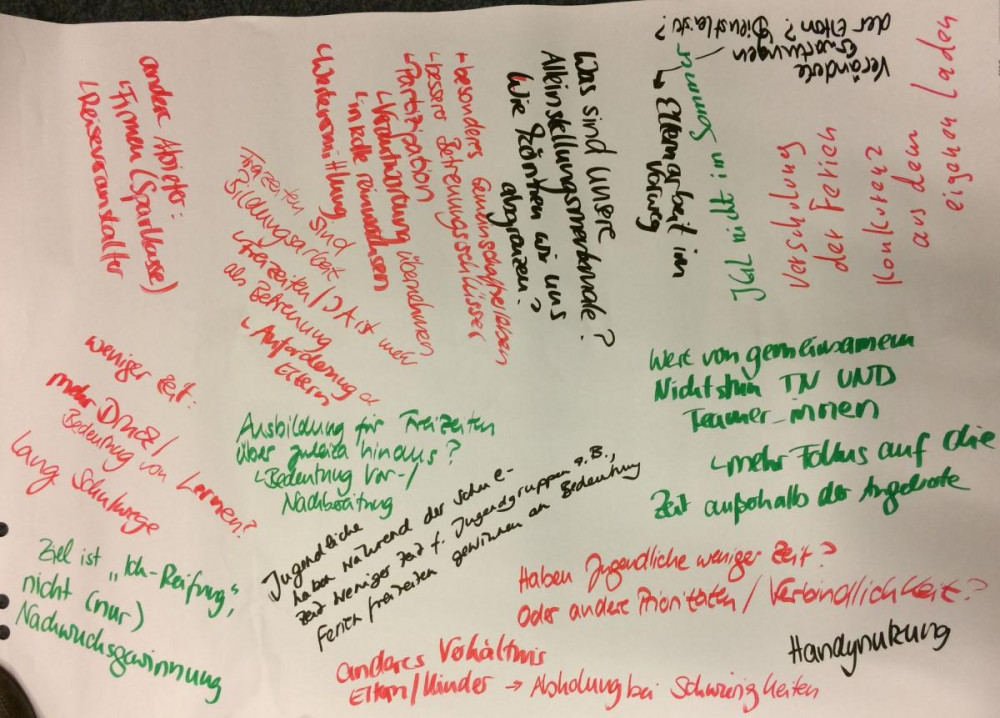 andere Abieter:
↳ Firmen (Sparkasse)
↳ Reiseveranstalter
weniger Zeit:
mehr Druck/
Bedeutung von Lernen?
Lange Schulwege
Ziel ist „Ich-Reifung",
nicht (nur)
Nachwuchsgewinnung
Was sind unsere
Alleinstellungsmerkmale?
Wie könnten wir uns
abgrenzen?
besonderes Gemeinschaftserleben
bessere Betreuungsschlüssel
Partizipation
↳ Verantwortung übernehmen
in Rolle reinwachsen
↳ Wertevermittlung
Freizeiten sind
Bildungsarbeit
↳ Freizeiten / ist mehr
als Betreuung
↳ Anforderung
Eltern
Ausbildung für Freizeiten
über hinaus?
↳ Bedeutung Vor-/
Nachbereitung
Jugendliche
haben während der Schule
Zeit weniger Zeit f. Jugendgruppen z.B.,
Ferienfreizeiten gewinnen an Bedeutung
Veränderte
Erwartungen
der Eltern? Dienstleist.?
→ Elternarbeit im
Vorweg
JGL nicht im Sommer
Verschulung
der Ferien
Konkurenz
aus dem
eigenen Laden
Wert von gemeinsamem
Nichtstun TN UND
Teamer_innen
↳ mehr Fokus auf die
Zeit außerhalb der Angebote
Haben Jugendliche weniger Zeit?
Oder andere Prioritäten / Verbindlichkeit?
Handynutzung
anderes Verhältnis
Eltern/Kinder → Abholung bei Schwierigkeiten